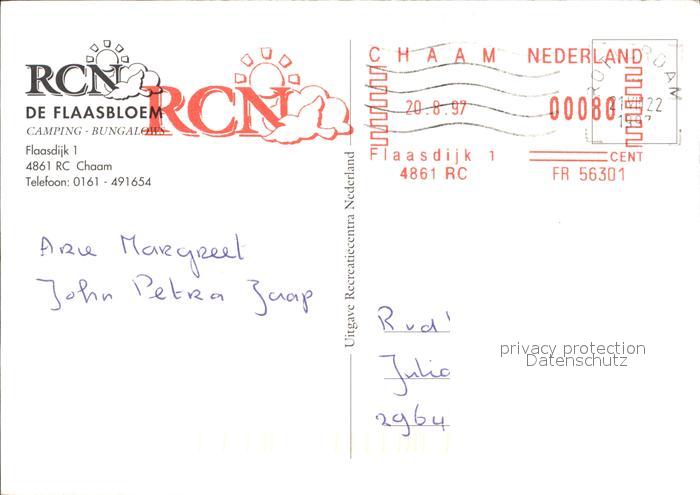 RCN
DE FLAASBLOEM
CAMPING - BUNGALOWS
Flaasdijk 1
4861 RC Chaam
Telefoon: 0161 - 491654
RCN
CHAAM NEDERLAND
20.8.97 00080
Flaasdijk 1 CENT
4861 RC FR 56301
Uitgave Recreatiecentra Nederland
Arie Margreet
John Petra Jaap
Rud'
Julia
2964
privacy protection
Datenschutz